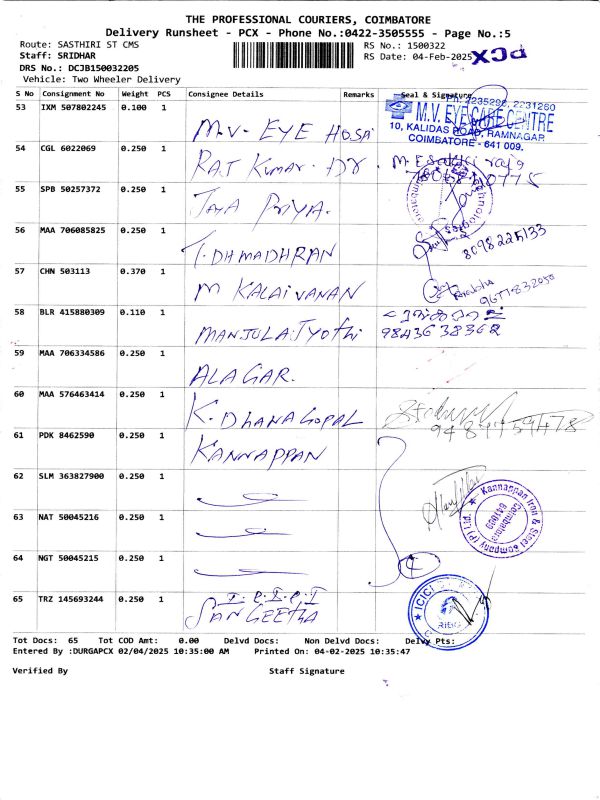 THE PROFESSIONAL COURIERS, COIMBATORE
Delivery Runsheet - PCX - Phone No.:0422-3505555 - Page No.:5
Route: SASTHIRI ST CMS
RS No.: 1500322
Staff: SRIDHAR
RS Date: 04-Feb-2025
PCX
DRS No.: DCJB150032205
Vehicle: Two Wheeler Delivery
S No Consignment No Weight PCS Consignee Details Remarks Seal & Signature
Ph: 2235296, 2231260
M.V. EYE CARE CENTRE
10, KALIDAS ROAD, RAMNAGAR
COIMBATORE - 641 009.
53 IXM 507802245 0.100 1 M.V. EYE HOSP
54 CGL 6022069 0.250 1 RAJ Kumar. DR.
55 SPB 50257372 0.250 1 JAYA PRIYA.
56 MAA 706085825 0.250 1 T. DHMADHRAN 8098225133
57 CHN 503113 0.370 1 M KALAIVANAN 9677-832050
58 BLR 415880309 0.110 1 MANJULA Jyothi 9843638362
59 MAA 706334586 0.250 1 ALAGAR.
60 MAA 576463414 0.250 1 K. DHANAGOPAL 9484459478
61 PDK 8462590 0.250 1 KANNAPPAN
62 SLM 363827900 0.250 1
Kannappan Iron & Steel Company (P) Ltd.
Coimbatore
641009
63 NAT 50045216 0.250 1
64 NGT 50045215 0.250 1 4
65 TRZ 145693244 0.250 1 I.P.I.P.I SANGEETHA
ICICI
Tot Docs: 65 Tot COD Amt: 0.00 Delvd Docs: Non Delvd Docs: Delvy Pts:
Entered By :DURGAPCX 02/04/2025 10:35:00 AM Printed On: 04-02-2025 10:35:47
Verified By Staff Signature